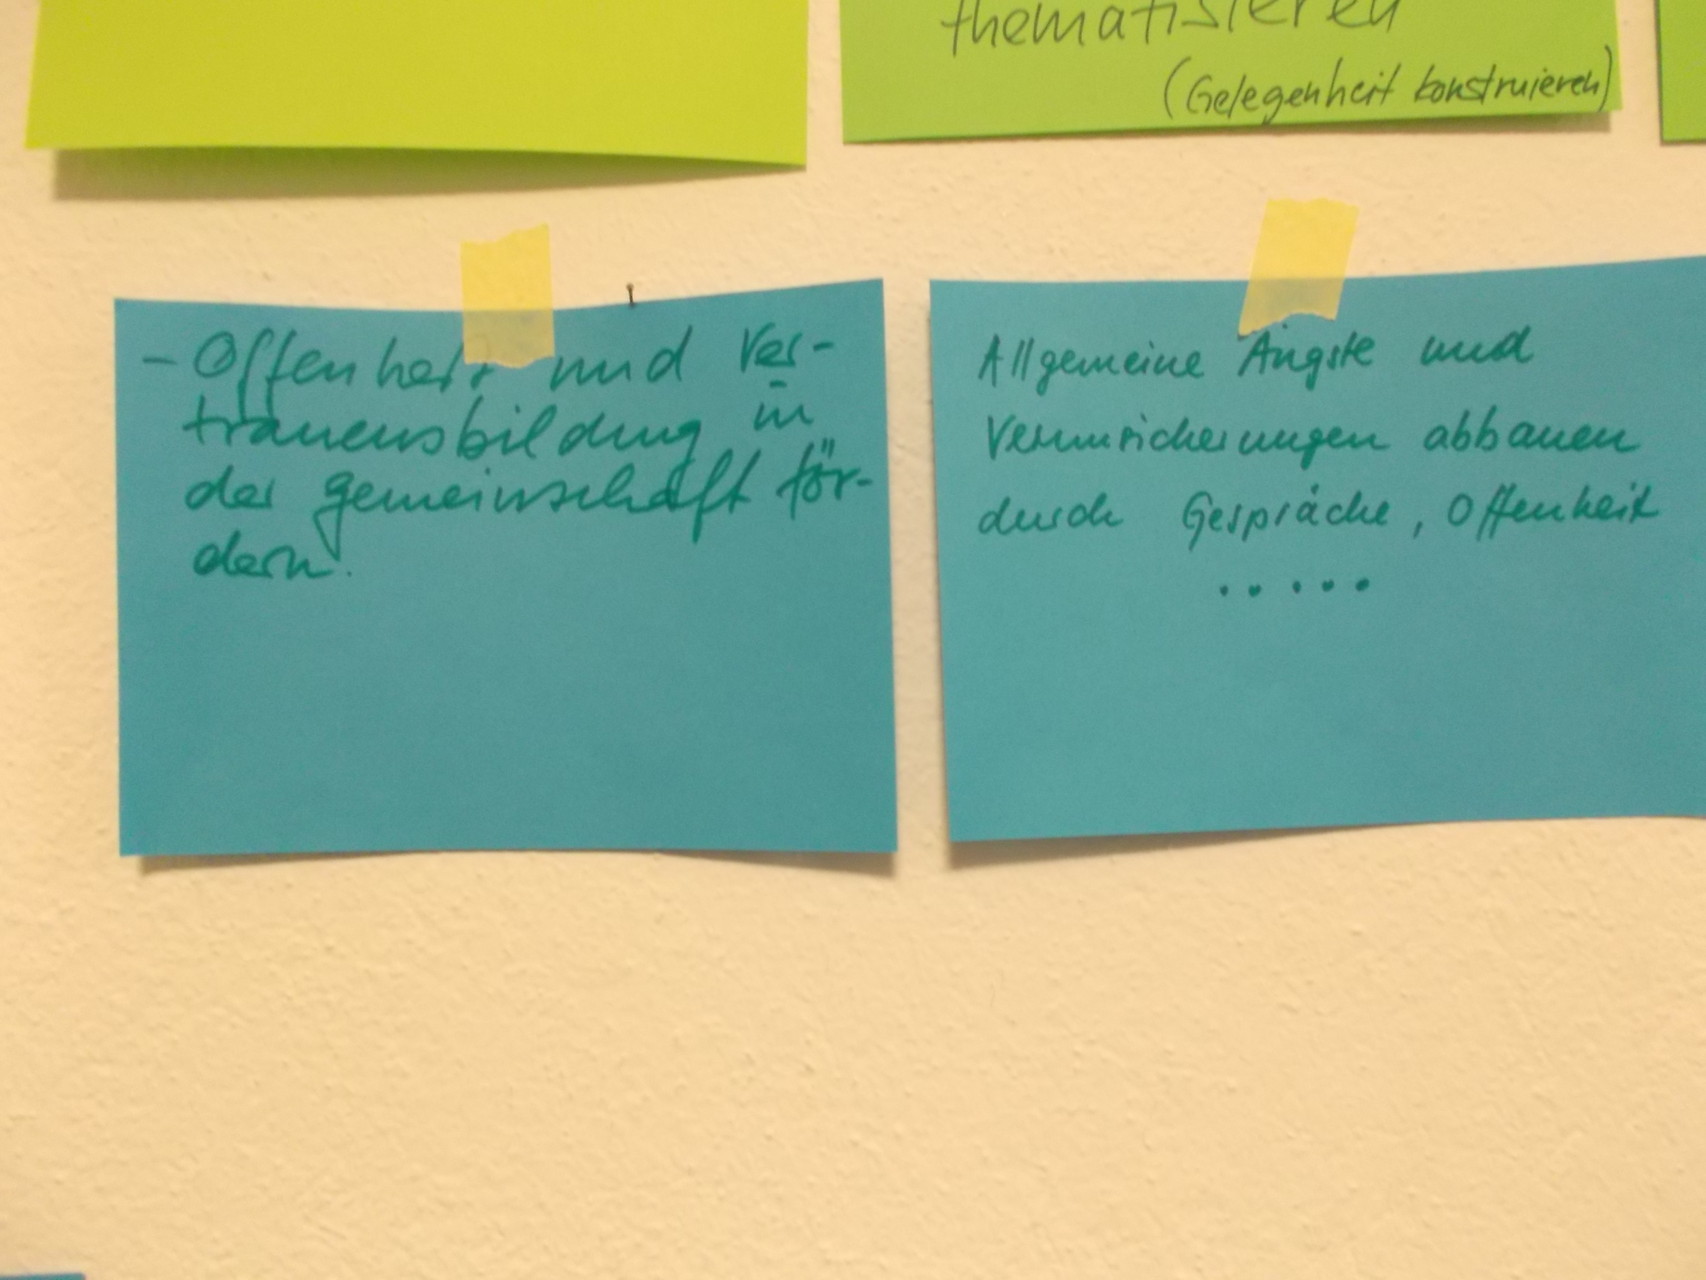 thematisieren
(Gelegenheit konstruieren)
- Offenheit und Ver-
trauensbildung in
der gemeinschaft för-
dern.
Allgemeine Ängste und
Verunsicherungen abbauen
durch Gespräche, Offenheit
.....